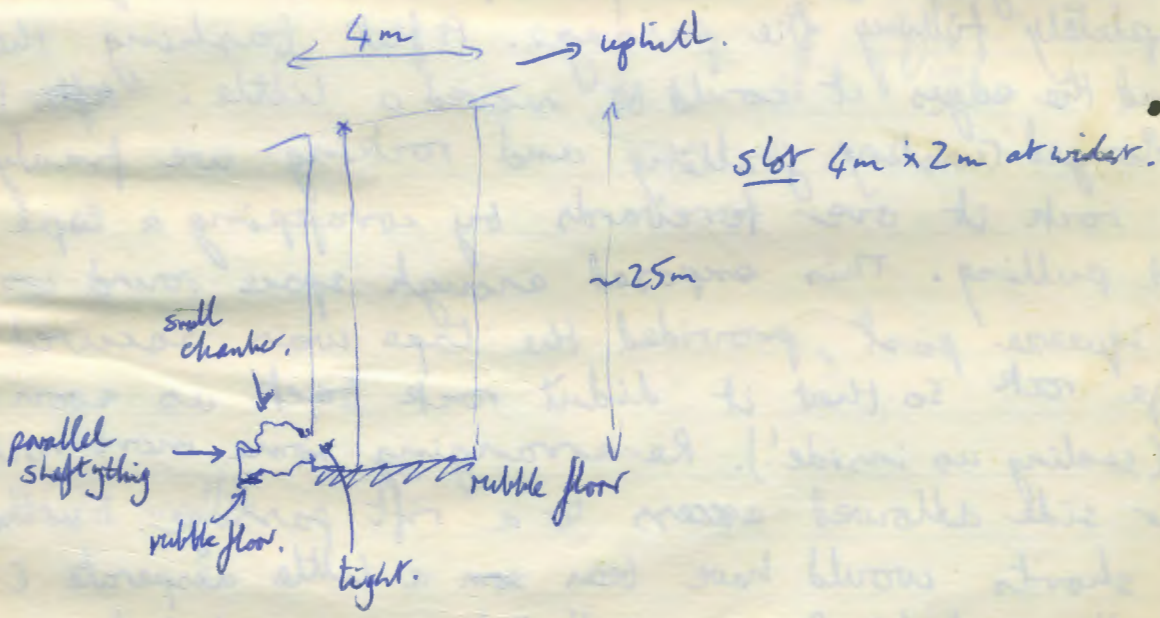 4m
uphill.
slot 4m x 2m at widest.
~25m
small
chamber.
parallel
shaftything
rubble floor.
rubble floor
tight.